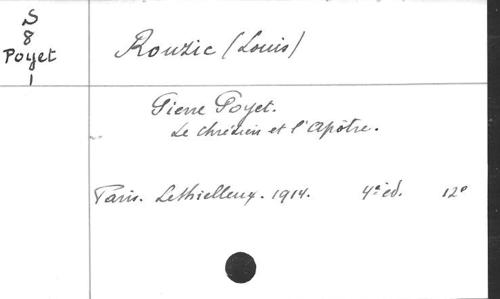 S
8
Poyet
1
Rouzic (Louis)
Pierre Poyet.
Le chrétien et l'Apôtre.
Paris. Lethielleux. 1914. 4e éd. 12°